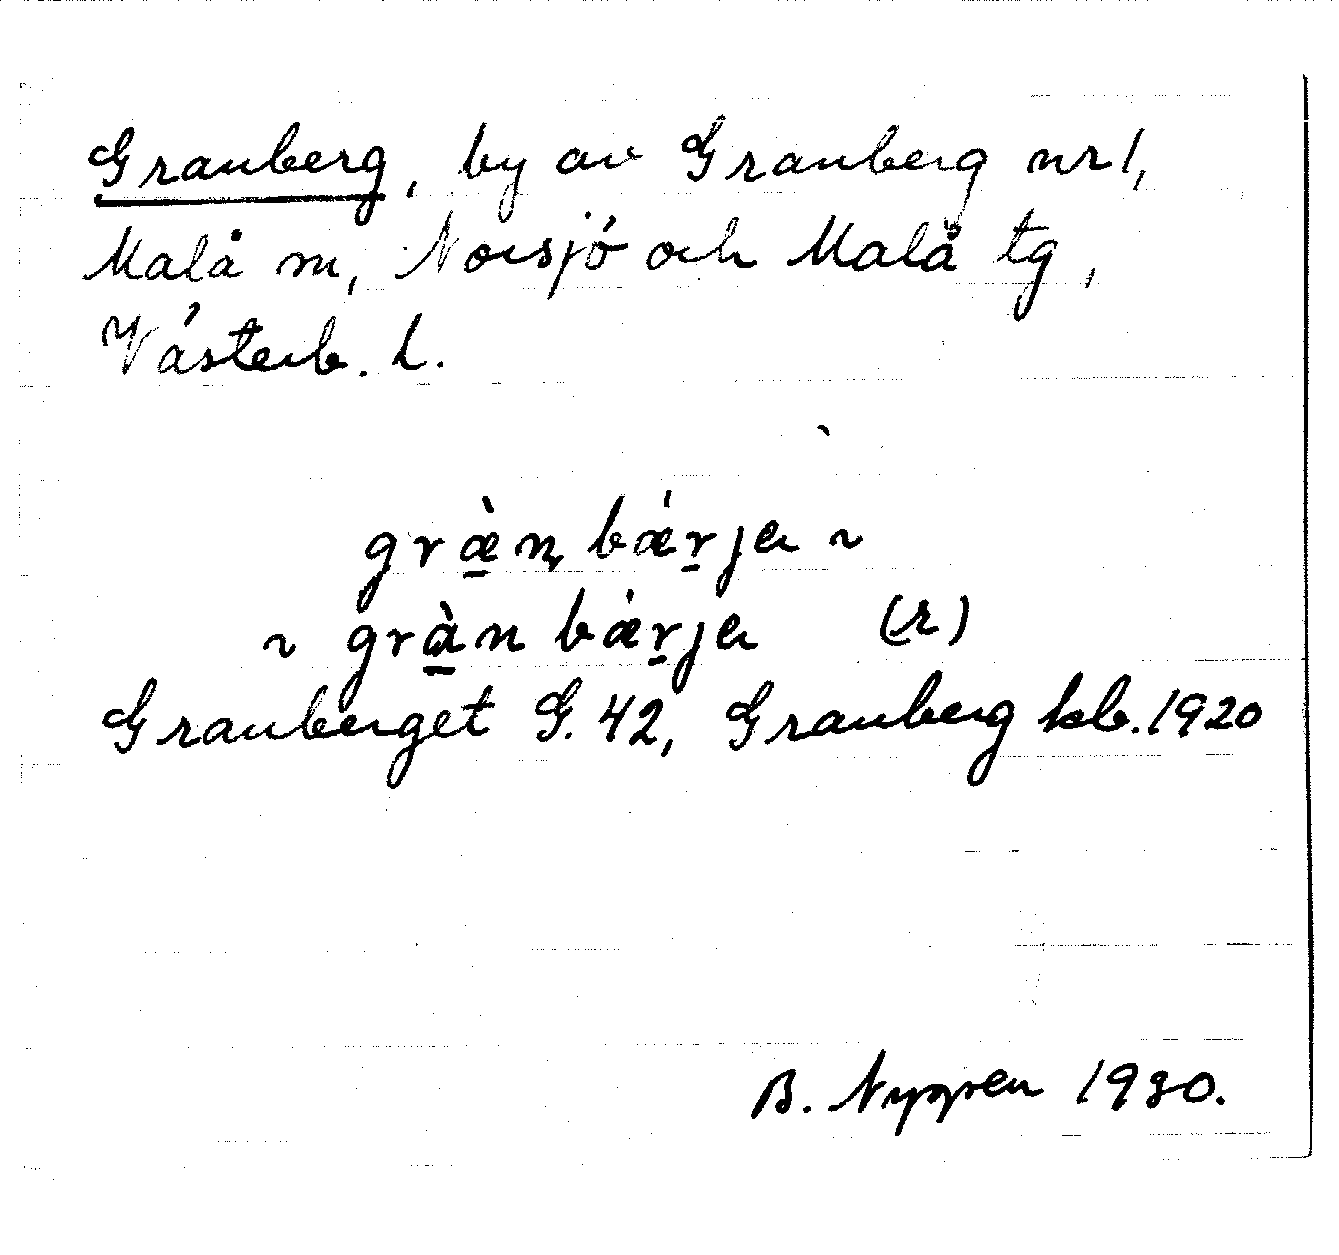 Granberg, by av Granberg nr 1,
Malå sn, Norsjö och Malå tg,
Västerb. l.
græ̀n bæ̀rja ~
~ gràn bæ̀rja (r)
Granberget G. 42, Granberg kb. 1920
B. Nygren 1930.